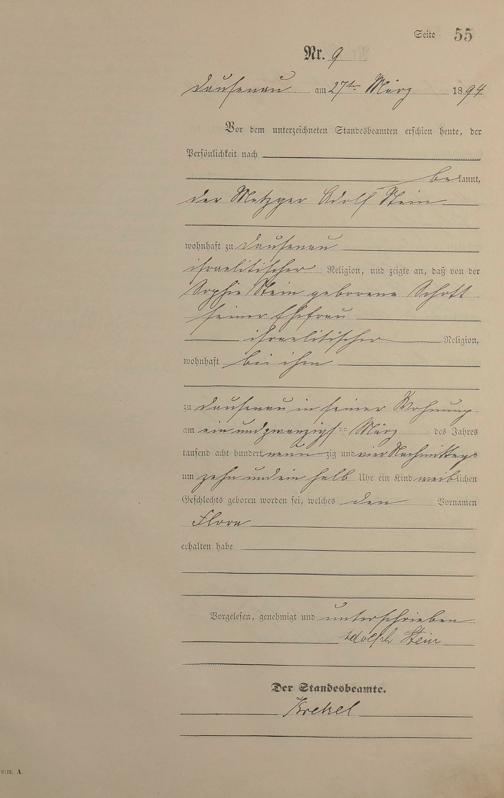 Seite 55
Nr. 9
Dausenau am 27ten März 1894
Vor dem unterzeichneten Standesbeamten erschien heute, der
Persönlichkeit nach
bekannt,
der Metzger Adolf Stein
wohnhaft zu Dausenau
israelitischer Religion, und zeigte an, daß von der
Sophie Stein geborene Schott
seiner Ehefrau
israelitischer Religion,
wohnhaft bei ihm
zu Dausenau in seiner Wohnung
am ein und zwanzigsten März des Jahres
tausend acht hundert neunzig und vier Nachmittags
um zehn und ein halb Uhr ein Kind weiblichen
Geschlechts geboren worden sei, welches den Vornamen
Flora
erhalten habe
Vorgelesen, genehmigt und unterschrieben
Adolph Stein
Der Standesbeamte.
A.